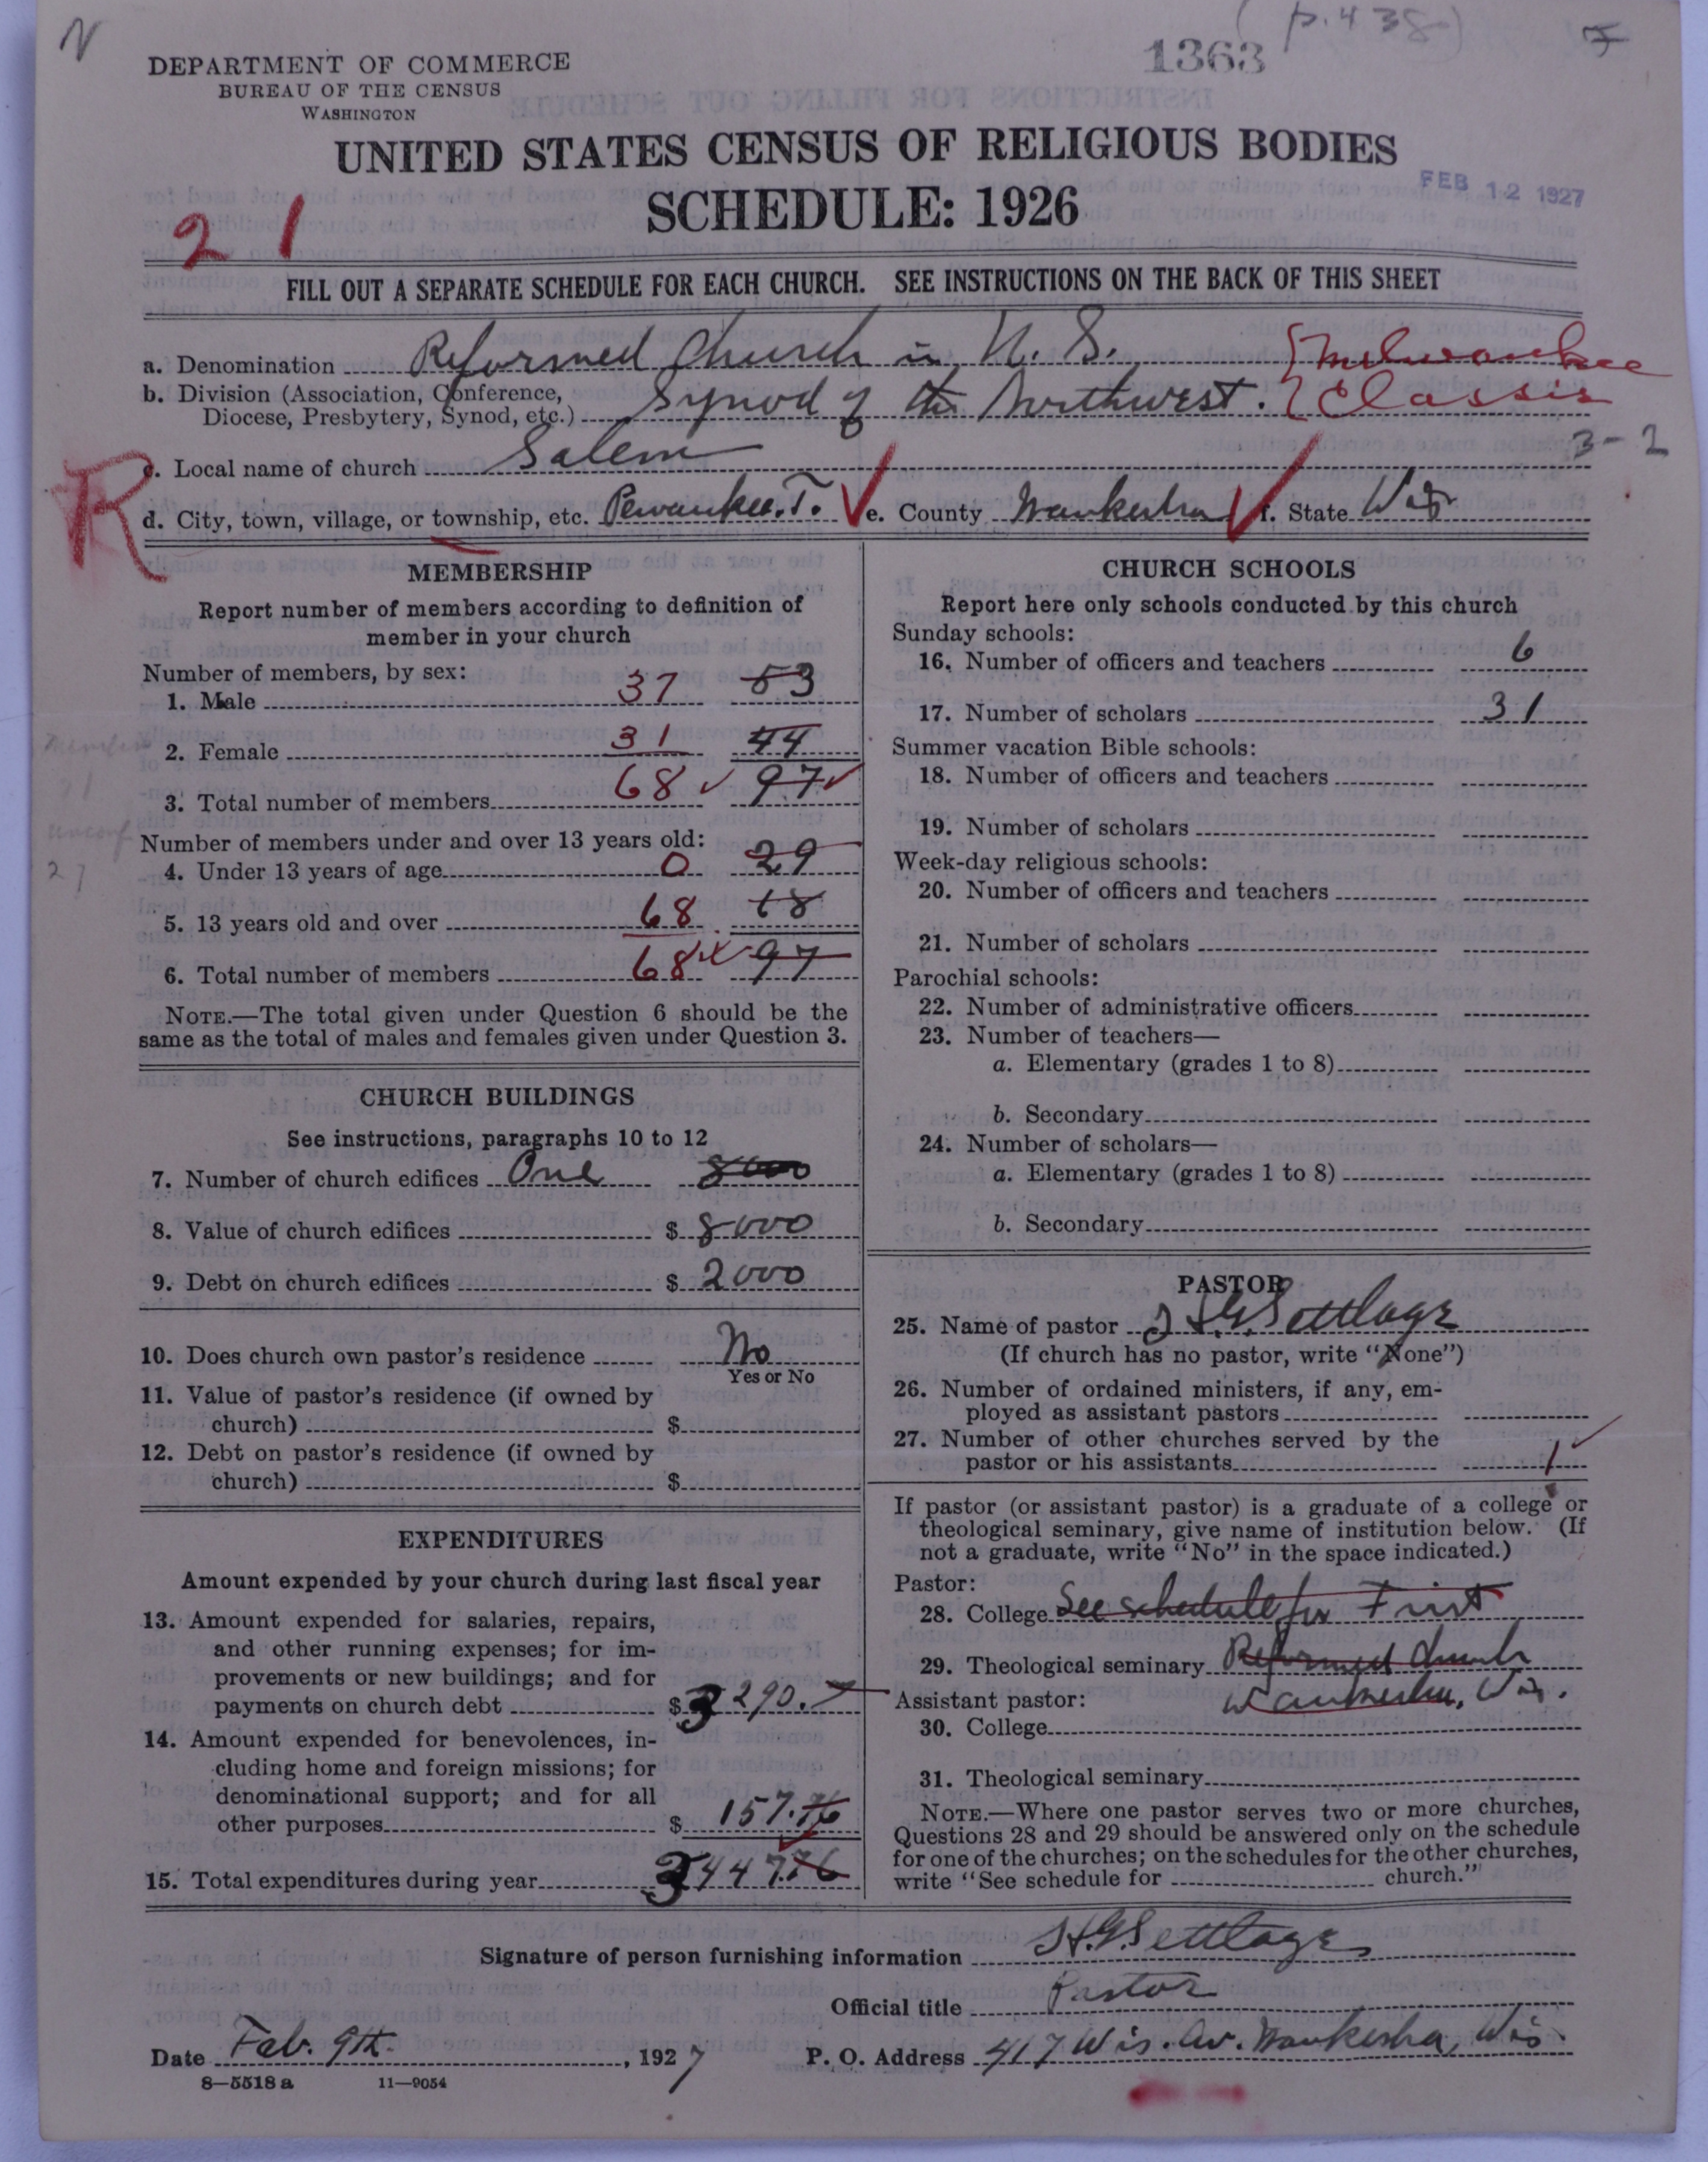 N
(p. 438)
1363
DEPARTMENT OF COMMERCE
BUREAU OF THE CENSUS
WASHINGTON
UNITED STATES CENSUS OF RELIGIOUS BODIES
SCHEDULE: 1926
FEB 12 1927
21
FILL OUT A SEPARATE SCHEDULE FOR EACH CHURCH. SEE INSTRUCTIONS ON THE BACK OF THIS SHEET
a. Denomination Reformed Church in U. S. {Milwaukee
b. Division (Association, Conference, Diocese, Presbytery, Synod, etc.) Synod of the Northwest. {Classis
3-2
c. Local name of church Salem
R
d. City, town, village, or township, etc. Pewaukee. T. e. County Waukesha f. State Wis
MEMBERSHIP
Report number of members according to definition of
member in your church
Number of members, by sex:
1. Male 37 53
2. Female 31 44
3. Total number of members 68 ✓ 97 ✓
Number of members under and over 13 years old:
4. Under 13 years of age 0 29
5. 13 years old and over 68 18
6. Total number of members 68 97
NOTE.—The total given under Question 6 should be the
same as the total of males and females given under Question 3.
CHURCH BUILDINGS
See instructions, paragraphs 10 to 12
7. Number of church edifices One 8000
8. Value of church edifices $ 8000
9. Debt on church edifices $ 2000
10. Does church own pastor's residence No
Yes or No
11. Value of pastor's residence (if owned by
church) $
12. Debt on pastor's residence (if owned by
church) $
EXPENDITURES
Amount expended by your church during last fiscal year
13. Amount expended for salaries, repairs,
and other running expenses; for im-
provements or new buildings; and for
payments on church debt $ 3290.
14. Amount expended for benevolences, in-
cluding home and foreign missions; for
denominational support; and for all
other purposes $ 157.76
15. Total expenditures during year 3447.76
CHURCH SCHOOLS
Report here only schools conducted by this church
Sunday schools:
16. Number of officers and teachers 6
17. Number of scholars 31
Summer vacation Bible schools:
18. Number of officers and teachers
19. Number of scholars
Week-day religious schools:
20. Number of officers and teachers
21. Number of scholars
Parochial schools:
22. Number of administrative officers
23. Number of teachers—
a. Elementary (grades 1 to 8)
b. Secondary
24. Number of scholars—
a. Elementary (grades 1 to 8)
b. Secondary
PASTOR
25. Name of pastor H.G. Settlage
(If church has no pastor, write "None")
26. Number of ordained ministers, if any, em-
ployed as assistant pastors
27. Number of other churches served by the
pastor or his assistants 1 ✓
If pastor (or assistant pastor) is a graduate of a college or
theological seminary, give name of institution below. (If
not a graduate, write "No" in the space indicated.)
Pastor:
28. College See schedule for First
29. Theological seminary Reformed Church
Assistant pastor: Waukesha, Wis.
30. College
31. Theological seminary
NOTE.—Where one pastor serves two or more churches,
Questions 28 and 29 should be answered only on the schedule
for one of the churches; on the schedules for the other churches,
write "See schedule for church."
Signature of person furnishing information H.G. Settlage
Official title Pastor
Date Feb. 9th, 1927 P. O. Address 417 Wis. Av. Waukesha, Wis.
8—5518 a 11—9054